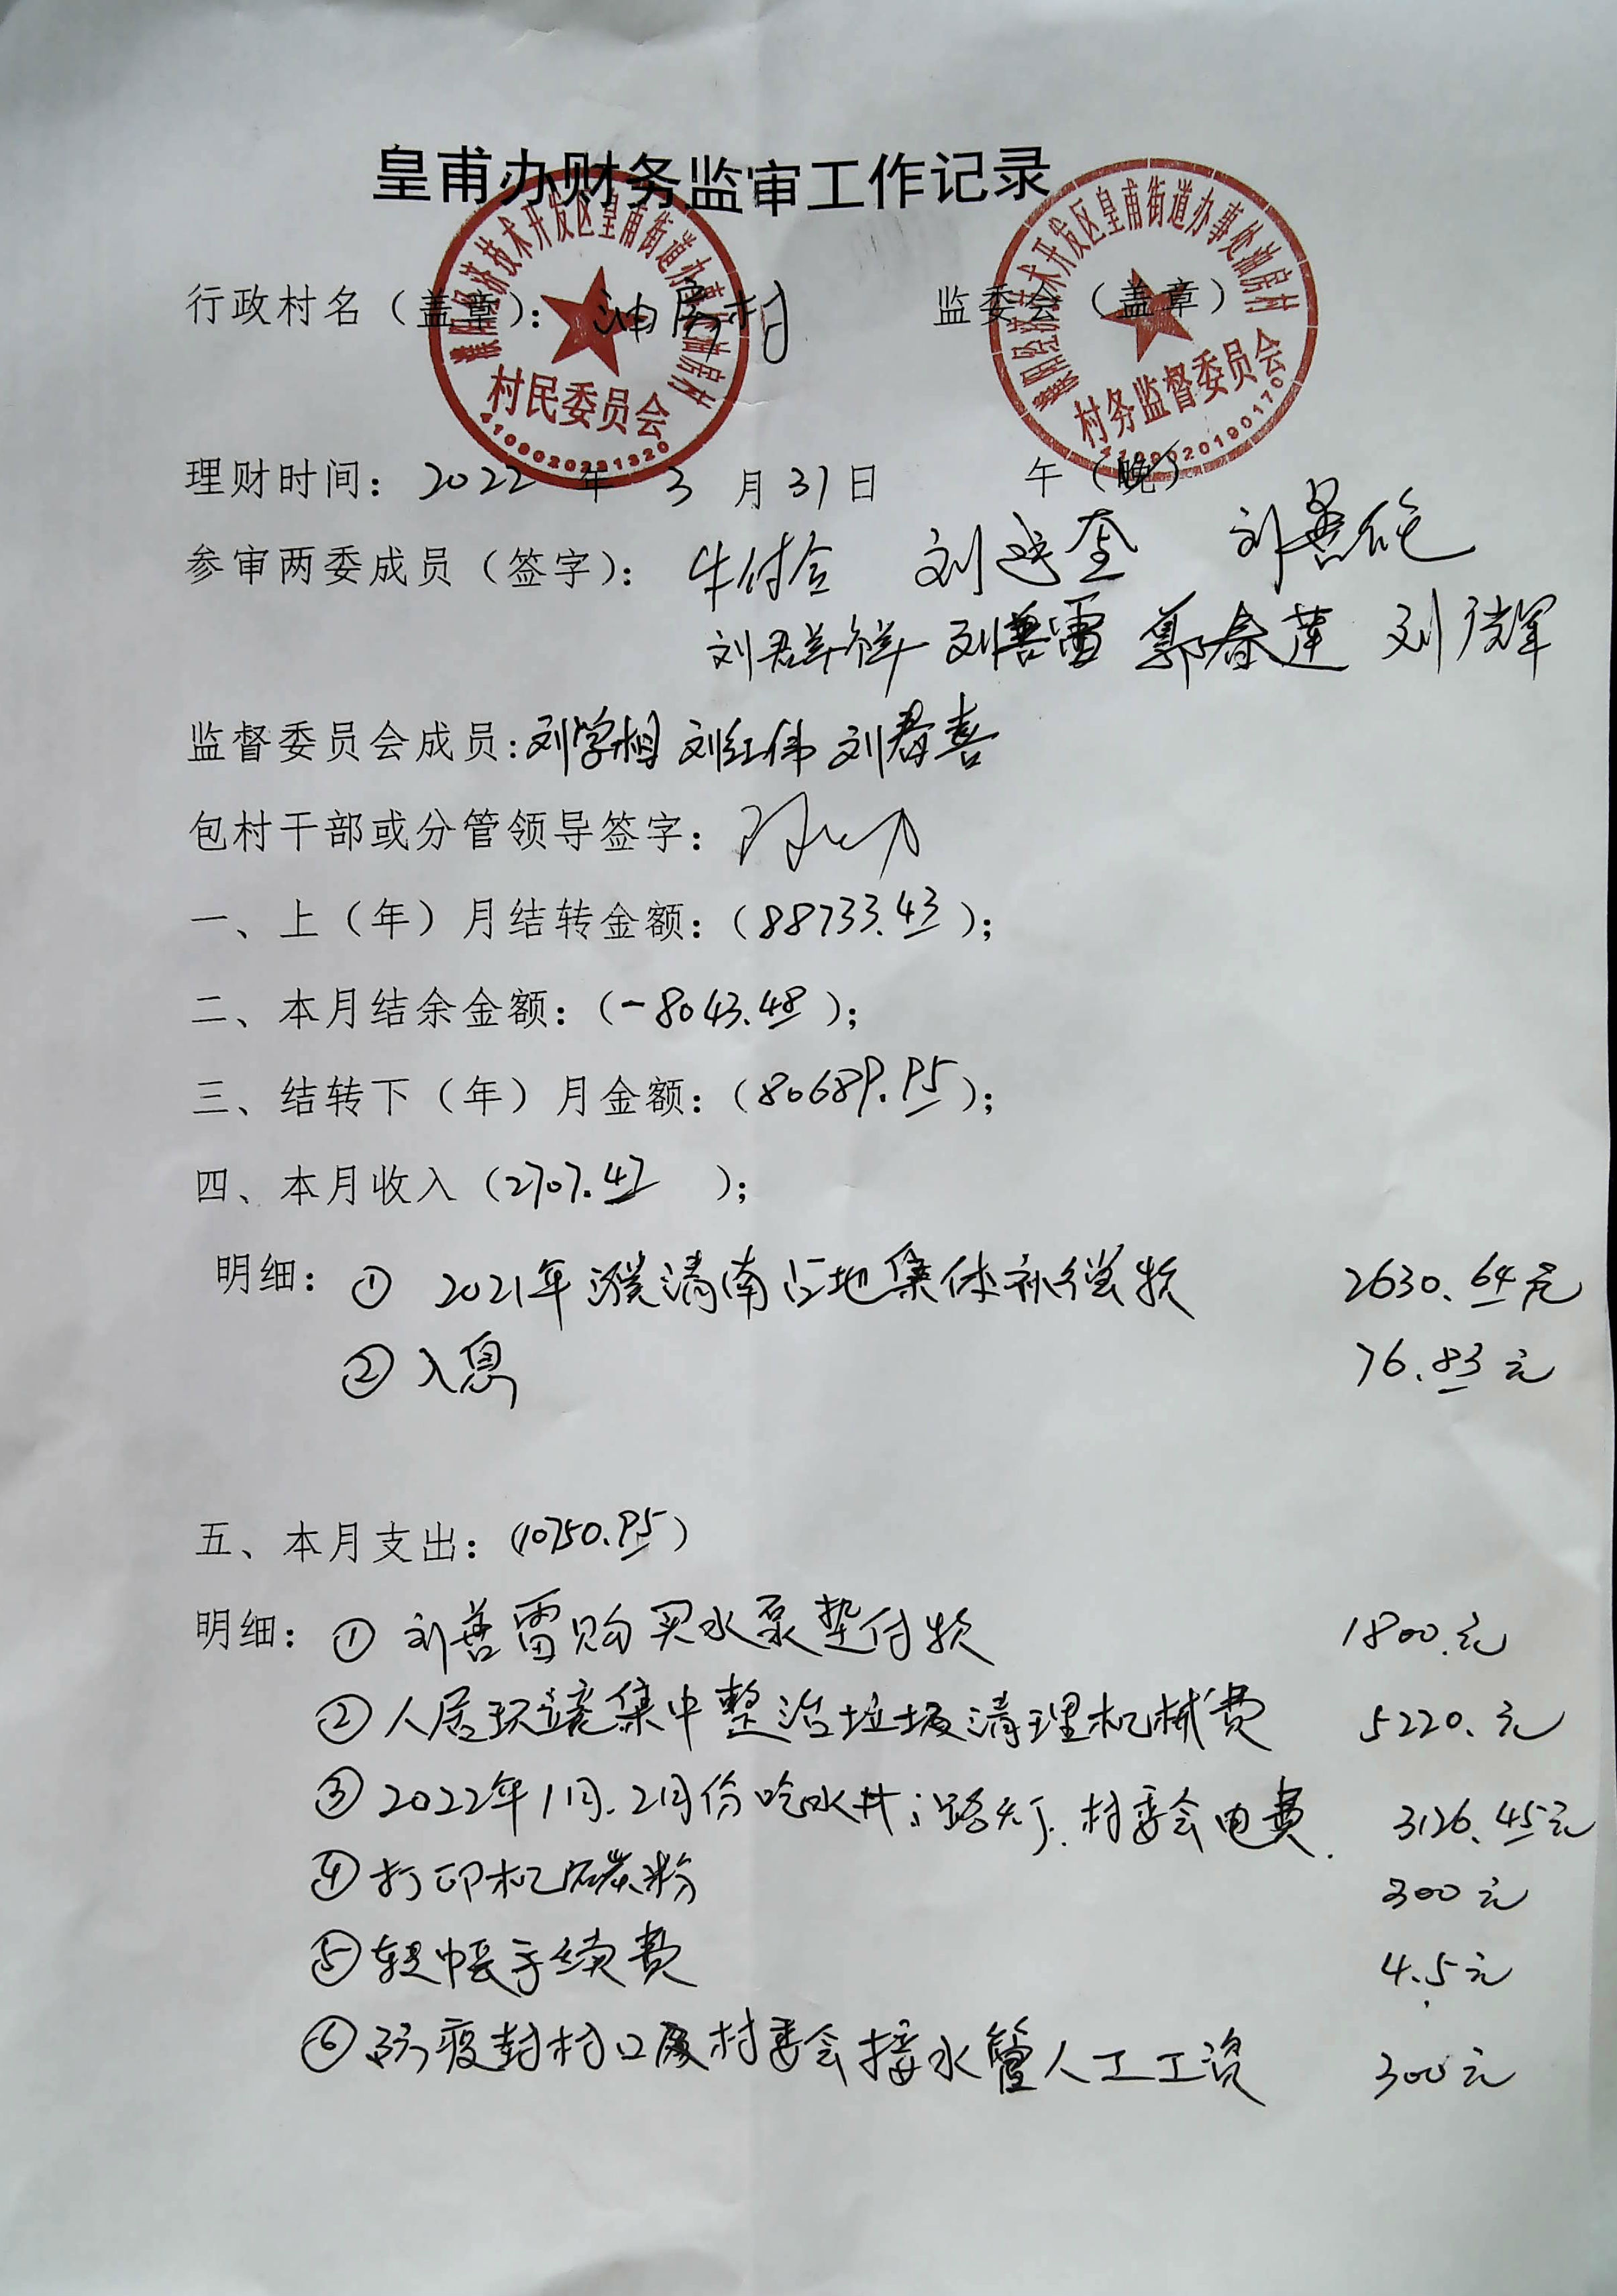 皇甫办财务监审工作记录
行政村名（盖章）：油房村 监委会（盖章）
村民委员会
4109020231320
村务监督委员会
理财时间：2022年3月31日 午（晚）
参审两委成员（签字）：牛付合 刘 刘善化
刘君祥 刘善雷 郭春莲 刘俊军
监督委员会成员：刘学相 刘红伟 刘春喜
包村干部或分管领导签字：
一、上（年）月结转金额：（88733.43）；
二、本月结余金额：（-8043.48）；
三、结转下（年）月金额：（80689.95）；
四、本月收入（2707.47 ）；
明细：① 2021年濮清南占地集体补偿款 2630.64元
② 入息 76.83元
五、本月支出：（10750.95）
明细：① 刘善雷购买水泵垫付款 1800.元
② 人居环境集中整治垃圾清理机械费 5220.元
③ 2022年1月.2月份吃水井;路灯.村委会电费. 3126.45元
④ 打印机碳粉 300元
⑤ 转帐手续费 4.5元
⑥ 防疫封村口及村委会接水管人工工资 300元